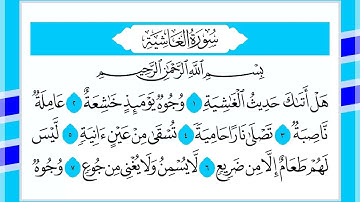 سُورَةُ الغَاشِيَةِ
بِسْمِ اللَّهِ الرَّحْمَٰنِ الرَّحِيمِ
هَلْ أَتَىٰكَ حَدِيثُ ٱلْغَٰشِيَةِ ١ وُجُوهٌ يَوْمَئِذٍ خَٰشِعَةٌ ٢ عَامِلَةٌ
نَّاصِبَةٌ ٣ تَصْلَىٰ نَارًا حَامِيَةً ٤ تُسْقَىٰ مِنْ عَيْنٍ ءَانِيَةٍ ٥ لَّيْسَ
لَهُمْ طَعَامٌ إِلَّا مِن ضَرِيعٍ ٦ لَّا يُسْمِنُ وَلَا يُغْنِى مِن جُوعٍ ٧ وُجُوهٌ